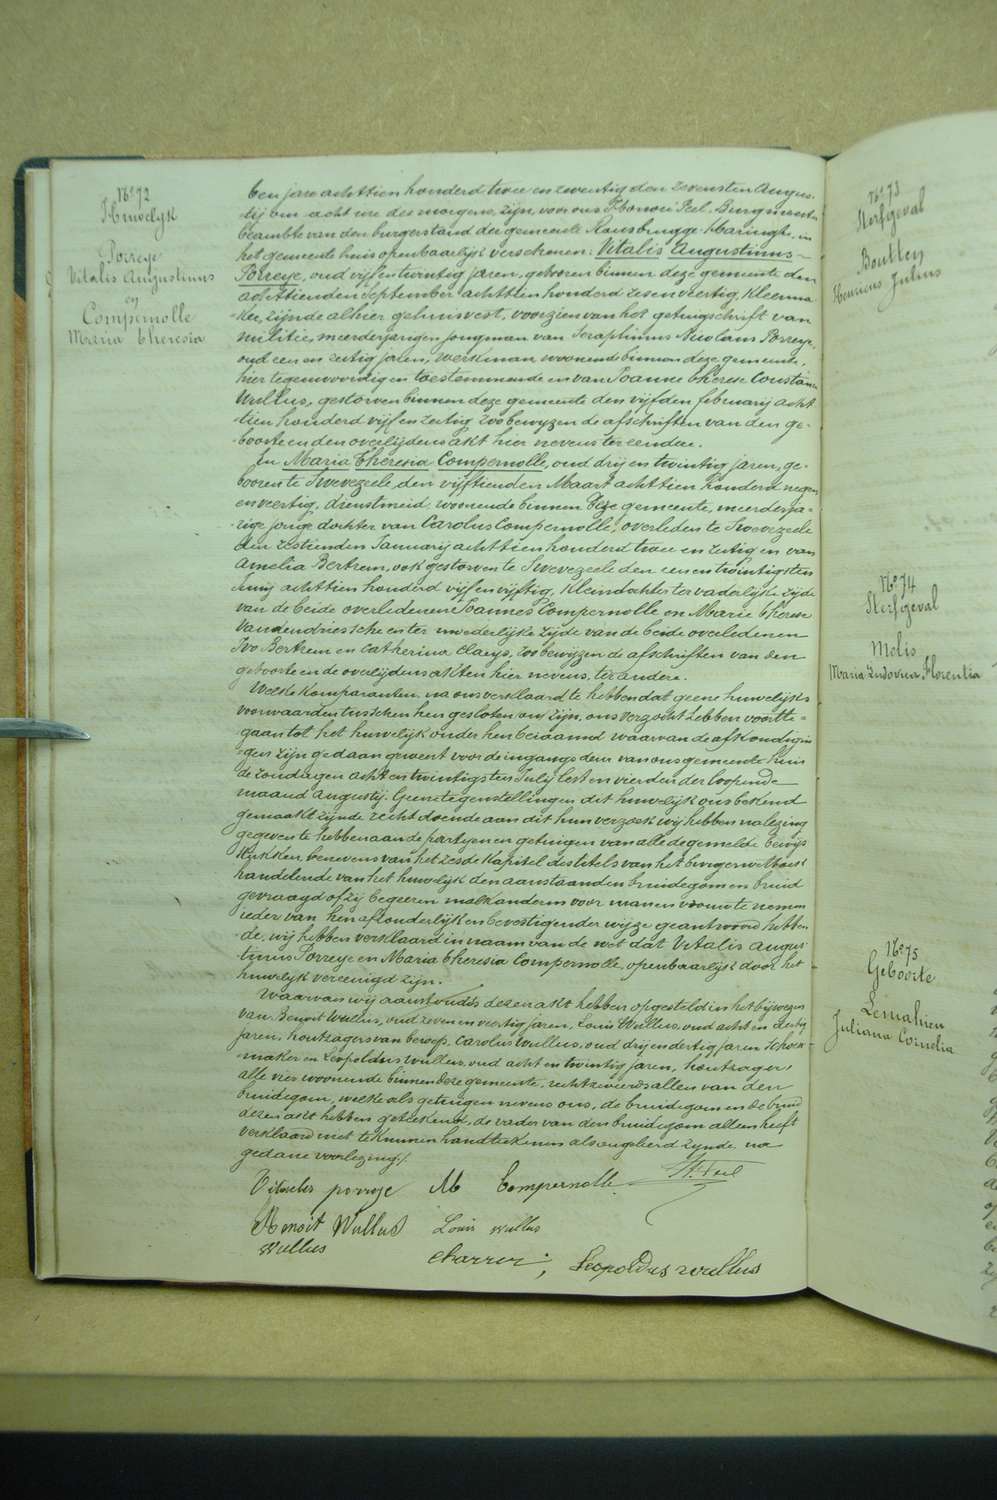 N° 72
Huwelyk
Porreye
Vitalis Augustinus
en
Compernolle
Maria Theresia
Een jare achttien honderd twee en zeventig den zevensten Augus-
tij om acht ure des morgens, zijn, voor ons Peel, Burgmeester
beambte van den burgerstand der gemeente Rousbrugge-Haringhe, in
het gemeente huis openbaarlijk verschenen: Vitalis Augustinus
Porreye, oud vijf en twintig jaren, geboren binnen deze gemeente den
achttienden September achttien honderd zes en veertig, Kleerma-
ker, zijnde alhier gehuisvest, voorzien van het getuigschrift van
militie, meerderjarigen jongman van Seraphinus Nicolaus Porreye,
oud een en zestig jaren, werkman, woonende binnen deze gemeente,
hier tegenwoordig en toestemmende en van Joanne Therese Constance
Wullus, gestorven binnen deze gemeente den vijfden february acht-
tien honderd vijf en zestig zoo bewyzen de afschriften van den ge-
boorte en den overlijdens akt hier nevens ter eendere.
En Maria Theresia Compernolle, oud drij en twintig jaren, ge-
boren te Swevezeele, den vijftienden Maart achttien honderd negen
en veertig, dienstmeid, woonende binnen deze gemeente, meerderja-
rige jonge dochter van Carolus Compernolle, overleden te Swevezeele
den zestienden January achttien honderd twee en zestig en van
Amelia Bertrem, ook gestorven te Swevezeele den een en twintigsten
Junij achttien honderd vijf en vijftig, Kleindochter ter vaderlijke zijde
van de beide overledenen Joannes Compernolle en Marie Therese
Vandendriessche en ter moederlijke zijde van de beide overledenen
Ivo Bertrem en Catherina Claeys, zoo bewijzen de afschriften van den
geboorte en de overlijdens akten hier nevens, ter andere.
Welke Komparanten, na ons verklaard te hebben dat geene huwelijks
voorwaarden tusschen hen gesloten zijn, ons verzocht hebben voortte-
gaan tot het huwelijk onder hen beraamd waarvan de afkondigin-
gen zijn gedaan geweest voor de ingangs deur van ons gemeente huis
de zondagen acht en twintigsten July lest en vierden der loopende
maand augustij. Geene tegenstellingen dit huwelijk ons bekend
gemaakt zijnde recht doende aan dit hun verzoek wij hebben na lezing
gegeven te hebben aan de partyen en getuigen van alle de gemelde bewijs-
stukken, benevens van het zesde Kapitel des titels van het burger wetboek
handelende van het huwelijk den aanstaanden bruidegom en bruid
gevraagd of zij begeeren malkanderen voor man en vrouw te nemen
ieder van hen afzonderlijk en bevestigender wijze geantwoord hebben-
de, wij hebben verklaard in naam van de wet dat Vitalis Augus-
tinus Porreye en Maria Theresia Compernolle, openbaarlijk door het
huwelijk vereenigd zijn.
Waarvan wij aanstonds dezen akt hebben opgesteld in het bijwezen
van Benoit Wullus, oud zeven en veertig jaren, Louis Wullus, oud acht en dertig
jaren, houtzagers van beroep, Carolus Wullus, oud drij en dertig jaren schoen-
maker en Leopoldus Wullus, oud acht en twintig jaren, houtzager,
alle vier woonende binnen deze gemeente, rechtzweers allen van den
bruidegom, welke als getuigen nevens ons, de bruidegom en de bruid
dezen akt hebben geteekend, de vader van den bruidegom alleen heeft
verklaard niet te kunnen handteekenen als ongeleerd zijnde na
gedane voorlezing./.
porreye M Compernolle Peel
Benoit Wullus Louis wullus
Wullus Charles; Leopoldus wullus
N° 73
Sterfgeval
Boutten
Henricus Julius
N° 74
Sterfgeval
Melis
Maria Ludovica Florentia
N° 75
Geboorte
Lemahieu
Juliana Cornelia